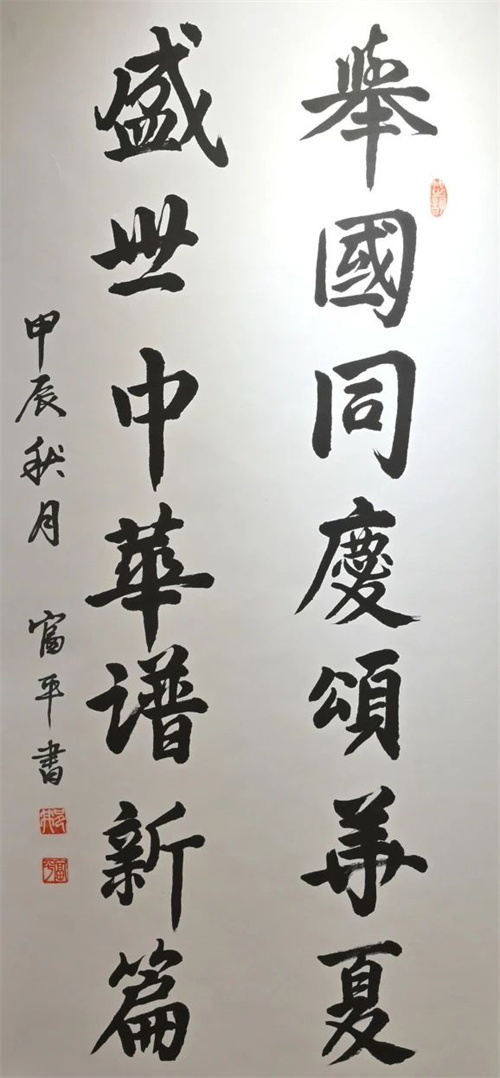 舉國同慶頌華夏
盛世中華譜新篇
甲辰秋月 富平書